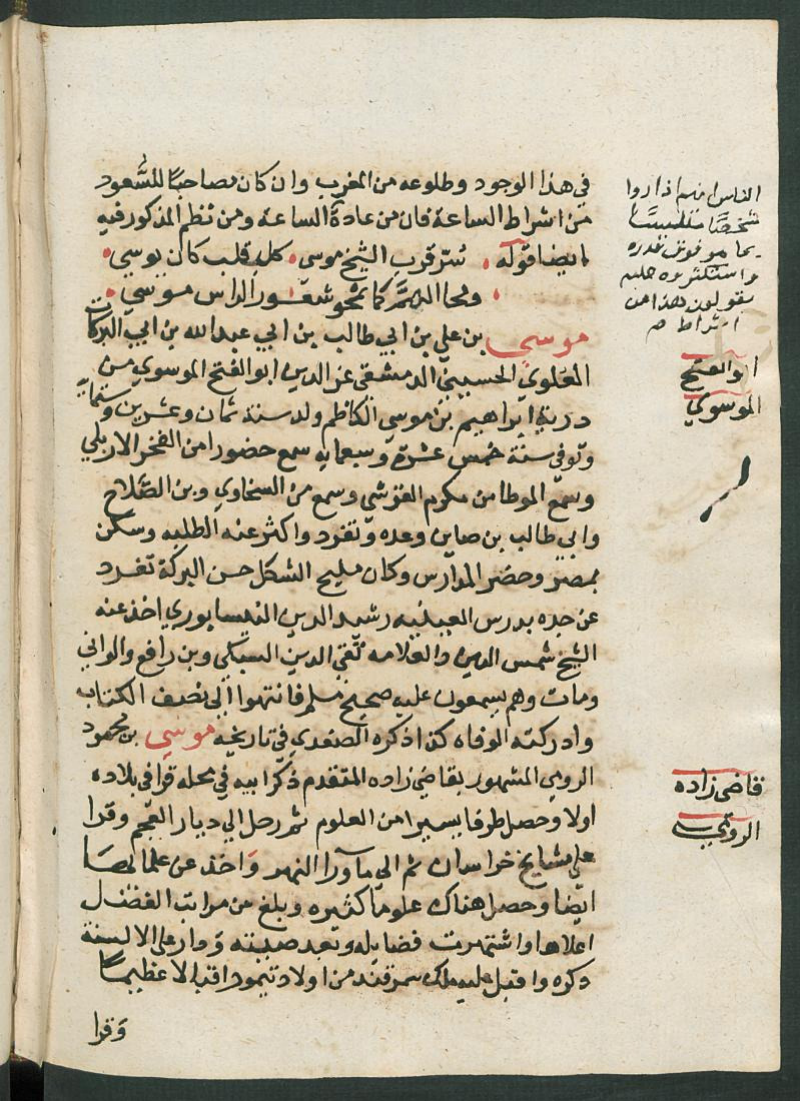 في هذا الوجود وطلوعه من المغرب وان كان مصاحبًا للسُّعود
من اشراط الساعة فان من عادة الساعة ومن نظم المذكور فيه
ايضا قوله قرب الشيخ موسى كل قلب كان يوسي
ومحا الهمَّ كما تمحو شعور الراس موسي
موسى بن علي بن ابي طالب بن ابي عبد الله بن ابي البركات
العلوي الحسيني الدمشقى عز الدين ابو الفتح الموسوي من
ذرية ابراهيم بن موسي الكاظم ولد سنة ثمان وعشرين وستمايه
وتوفى سنة خمس عشرة وسبعمايه سمع حضورا من الفخر الاربلي
وسمع الموطا من مكرم القرشي وسمع من السخاوي وبن الصَّلاح
وابي طالب بن صابر وعده وتفرد واكثر عنه الطلبه وسكن
بمصر وحضر المدارس وكان مليح الشكل حسن البركة تفرد
عن جده بدرس رشيد الدين النيسابوري اخذ عنه
الشيخ شمس الدين والعلامه تقي الدين السبكي وبن رافع والواني
ومات وهم يسمعون عليه صحيح مسلم فانتهوا الى نصف الكتاب
وادركته الوفاه كذا ذكره الصفدي في تاريخه موسى بن محمود
الرومي المشهور بقاضي زاده المتقدم ذكر ابيه في محله قرا في بلاده
اولا وحصل طرفا يسيرا من العلوم ثم رحل الي ديار العجم وقرا
علي مشايخ خراسان ثم الي ما ورا النهر واخذ عن علمائها
ايضا وحصل هناك علوما كثيره وبلغ من مراتب الفضل
اعلاها واشتهرت فضايله وبعد صيته ودار على الالسنة
ذكره واقبل عليه ملك سمرقند من اولاد تيمور اقبالا عظيمًا
وقرا
الناس انهم اذا راوا
شخصًا متلبسًا
بما هو فوق قدره
واستكثروه عليه
يقولون هذا من
اشراط
ابو الفتح
الموسوي
قاضى زاده
الرومي